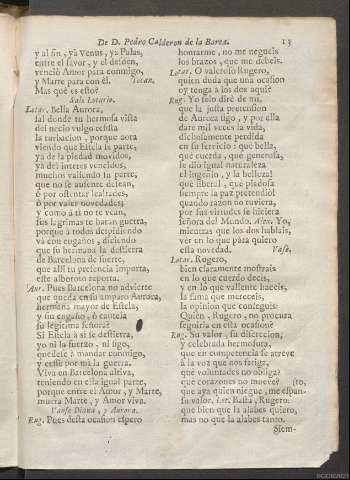 De D. Pedro Calderon de la Barca. 13
y al fin, ya Venus, ya Palas,
entre el favor, y el desden,
venciò Amor para conmigo,
y Marte para con èl. Tocan.
Mas què es esto?
Sale Lotario.
Lotar. Bella Aurora,
sal donde tu hermosa vista
del necio vulgo resista
la turbacion, porque aora
viendo que Estela se parte,
ya de la piedad movidos,
ya del interès vencidos,
muchos valiendo su parte,
que no se ausente desean,
ò por ostentar lealtades,
ò por valer novedades;
y como à ti no te vean,
sus lagrimas te haràn guerra,
porque à todos despidiendo
và con engaños, diciendo
que su hermana la destierra
de Barcelona de suerte,
que assi tu presencia importa,
este alboroto reporta.
Aur. Pues Barcelona no advierte
que queda en su amparo Aurora,
hermana mayor de Estela,
y sin engaño, ò cautela
su legitima señora?
Si Estela à sì se destierra,
yo ni la fuerzo, ni sigo,
quedese à mandar conmigo,
y cesse por mì la guerra.
Viva en Barcelona altiva,
teniendo en ella igual parte,
porque entre el Amor, y Marte,
muera Marte, y Amor viva.
Vanse Diana, y Aurora.
Rug. Pues desta ocasion espero
honrarme, no me negueis
los brazos, que me debeis.
Lotar. O valeroso Rugero,
quien duda que una ocasion
oy tenga à los dos aqui?
Rug. Yo solo dirè de mì,
que la justa pretension
de Aurora sigo, y por ella
darè mil veces la vida,
dichosamente perdida
en su servicio: què bella,
què cuerda, què generosa,
se diò igual naturaleza
el ingenio, y la belleza!
què liberal, què piadosa
siempre la paz pretendiò!
quando razon no tuviera,
por sus virtudes se hiciera
señora del Mundo. Alex. Yo,
mientras que los dos hablais,
vèr en lo que pàra quiero
esta novedad. Vase.
Lotar. Rugero,
bien claramente mostrais
en lo que cuerdo decis,
y en lo que valiente haceis,
la fama que mereceis,
la opinion que conseguìs:
Quièn, Rugero, no procura
seguirla en esta ocasion?
Rug. Su valor, su discrecion,
y celebrada hermosura,
que en competencia se atreve
à la voz que nos fatiga,
què voluntades no obliga?
què corazones no mueve?
que aya quien niegue, me espan- (to,
su valor. Lot. Basta, Rugero:
que bien que la alabes quiero,
mas no que la alabes tanto.
Siem-